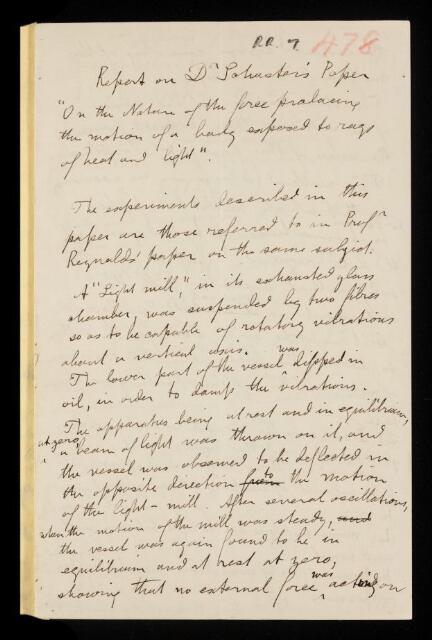 RR. 7 478
Report on Dr Schuster's Paper
"On the Nature of the force producing
the motion of a body exposed to rays
of heat and light".
The experiments described in this
paper are those referred to in Profr
Reynolds' paper on the same subject.
A "Light mill," in its exhausted glass
chamber, was suspended by two fibres
so as to be capable of rotatory vibrations
about a vertical axis.
The lower part of the vessel was dipped in
oil, in order to damp the vibrations.
The apparatus being at rest and in equilibrium,
at zero a beam of light was thrown on it, and
the vessel was observed to be deflected in
the opposite direction from to the motion
of the light-mill. After several oscillations,
when the motion of the mill was steady, and
the vessel was again found to be in
equilibrium and at rest at zero,
showing that no external force was acting on